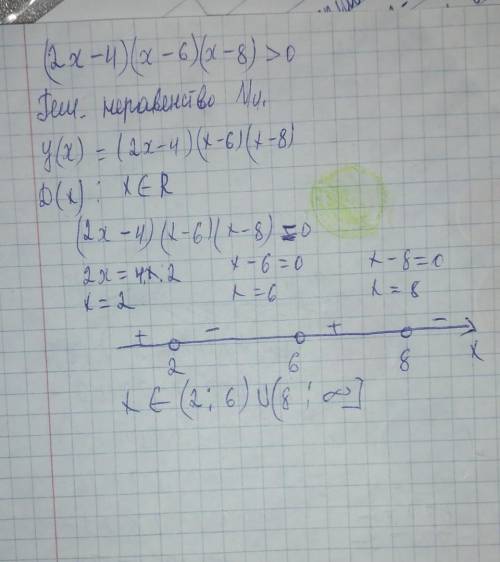 (2x-4)(x-6)(x-8)>0
Реш. неравенство Ми.
y(x) = (2x-4)(x-6)(x-8)
D(x): x∈R
(2x-4)(x-6)(x-8)=0
2x=4 x-6=0 x-8=0
x=2 x=6 x=8
+ - + -
2 6 8 x
x∈(2;6)∪(8;∞]